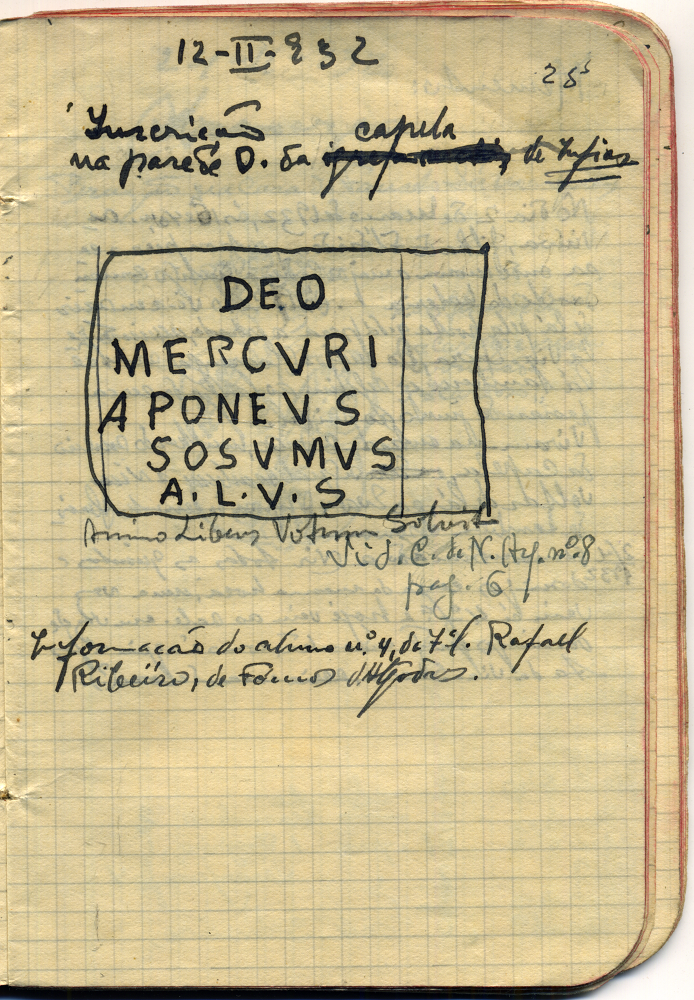 12-II-932
25
Inscrição
capela
na parede D. da de Infias
DEO
MERCVRI
APONEVS
SOSVMVS
A.L.V.S
Animo Libens Votum Solvit
Vid. C. de N. Ag. nº 8
pag. 6
Informação do aluno nº 4, do 7º Rafael
Ribeiro, de Fornos d'Algodres.